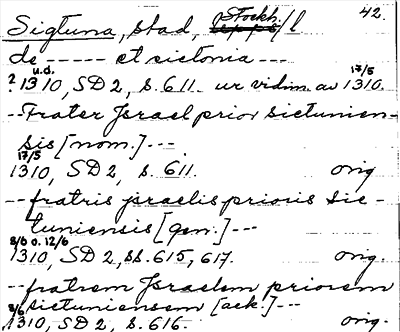 42.
Sigtuna, stad, Stockh./l
de ----- et sictonia ---
? u.d. 1310, SD 2, s. 611. ur vidim. av 17/5 1310.
-- Frater Israel prior sictunien-
sis [nom.] ---
17/5 1310, SD 2, s. 611. orig.
-- fratris israelis prioris sic-
tuniensis [gen.] ---
8/6 o. 12/6 1310, SD 2, ss. 615, 617. orig.
-- fratrem Israelem priorem
sictuniensem [ack.] ---
8/6 1310, SD 2, s. 616. orig.